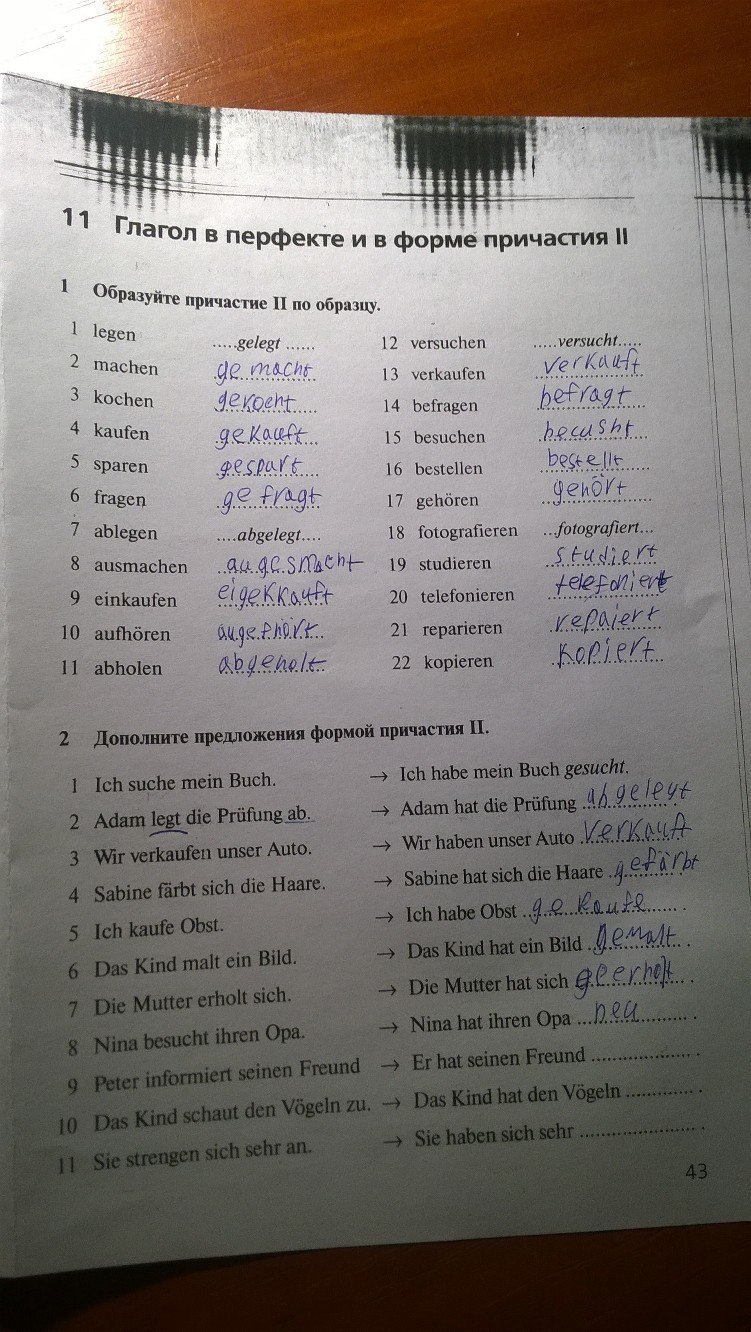 11 Глагол в перфекте и в форме причастия II
1 Образуйте причастие II по образцу.
1 legen .....gelegt ...... 12 versuchen .....versucht.....
2 machen ge macht 13 verkaufen verkauft
3 kochen gekocht 14 befragen befragt
4 kaufen gekauft 15 besuchen becusht
5 sparen gespart 16 bestellen bestellt
6 fragen ge fragt 17 gehören gehört
7 ablegen ....abgelegt.... 18 fotografieren ...fotografiert...
8 ausmachen augesmacht 19 studieren studiert
9 einkaufen eigekkauft 20 telefonieren telefoniert
10 aufhören augefhört 21 reparieren repaiert
11 abholen abgeholt 22 kopieren kopiert
2 Дополните предложения формой причастия II.
1 Ich suche mein Buch. → Ich habe mein Buch gesucht.
2 Adam legt die Prüfung ab. → Adam hat die Prüfung abgelegt
3 Wir verkaufen unser Auto. → Wir haben unser Auto verkauft
4 Sabine färbt sich die Haare. → Sabine hat sich die Haare gefärbt
5 Ich kaufe Obst. → Ich habe Obst ge kaufe .
6 Das Kind malt ein Bild. → Das Kind hat ein Bild gemalt .
7 Die Mutter erholt sich. → Die Mutter hat sich geerholt .
8 Nina besucht ihren Opa. → Nina hat ihren Opa ... .
9 Peter informiert seinen Freund → Er hat seinen Freund ...................... .
10 Das Kind schaut den Vögeln zu. → Das Kind hat den Vögeln .............. .
11 Sie strengen sich sehr an. → Sie haben sich sehr ........................ .
43